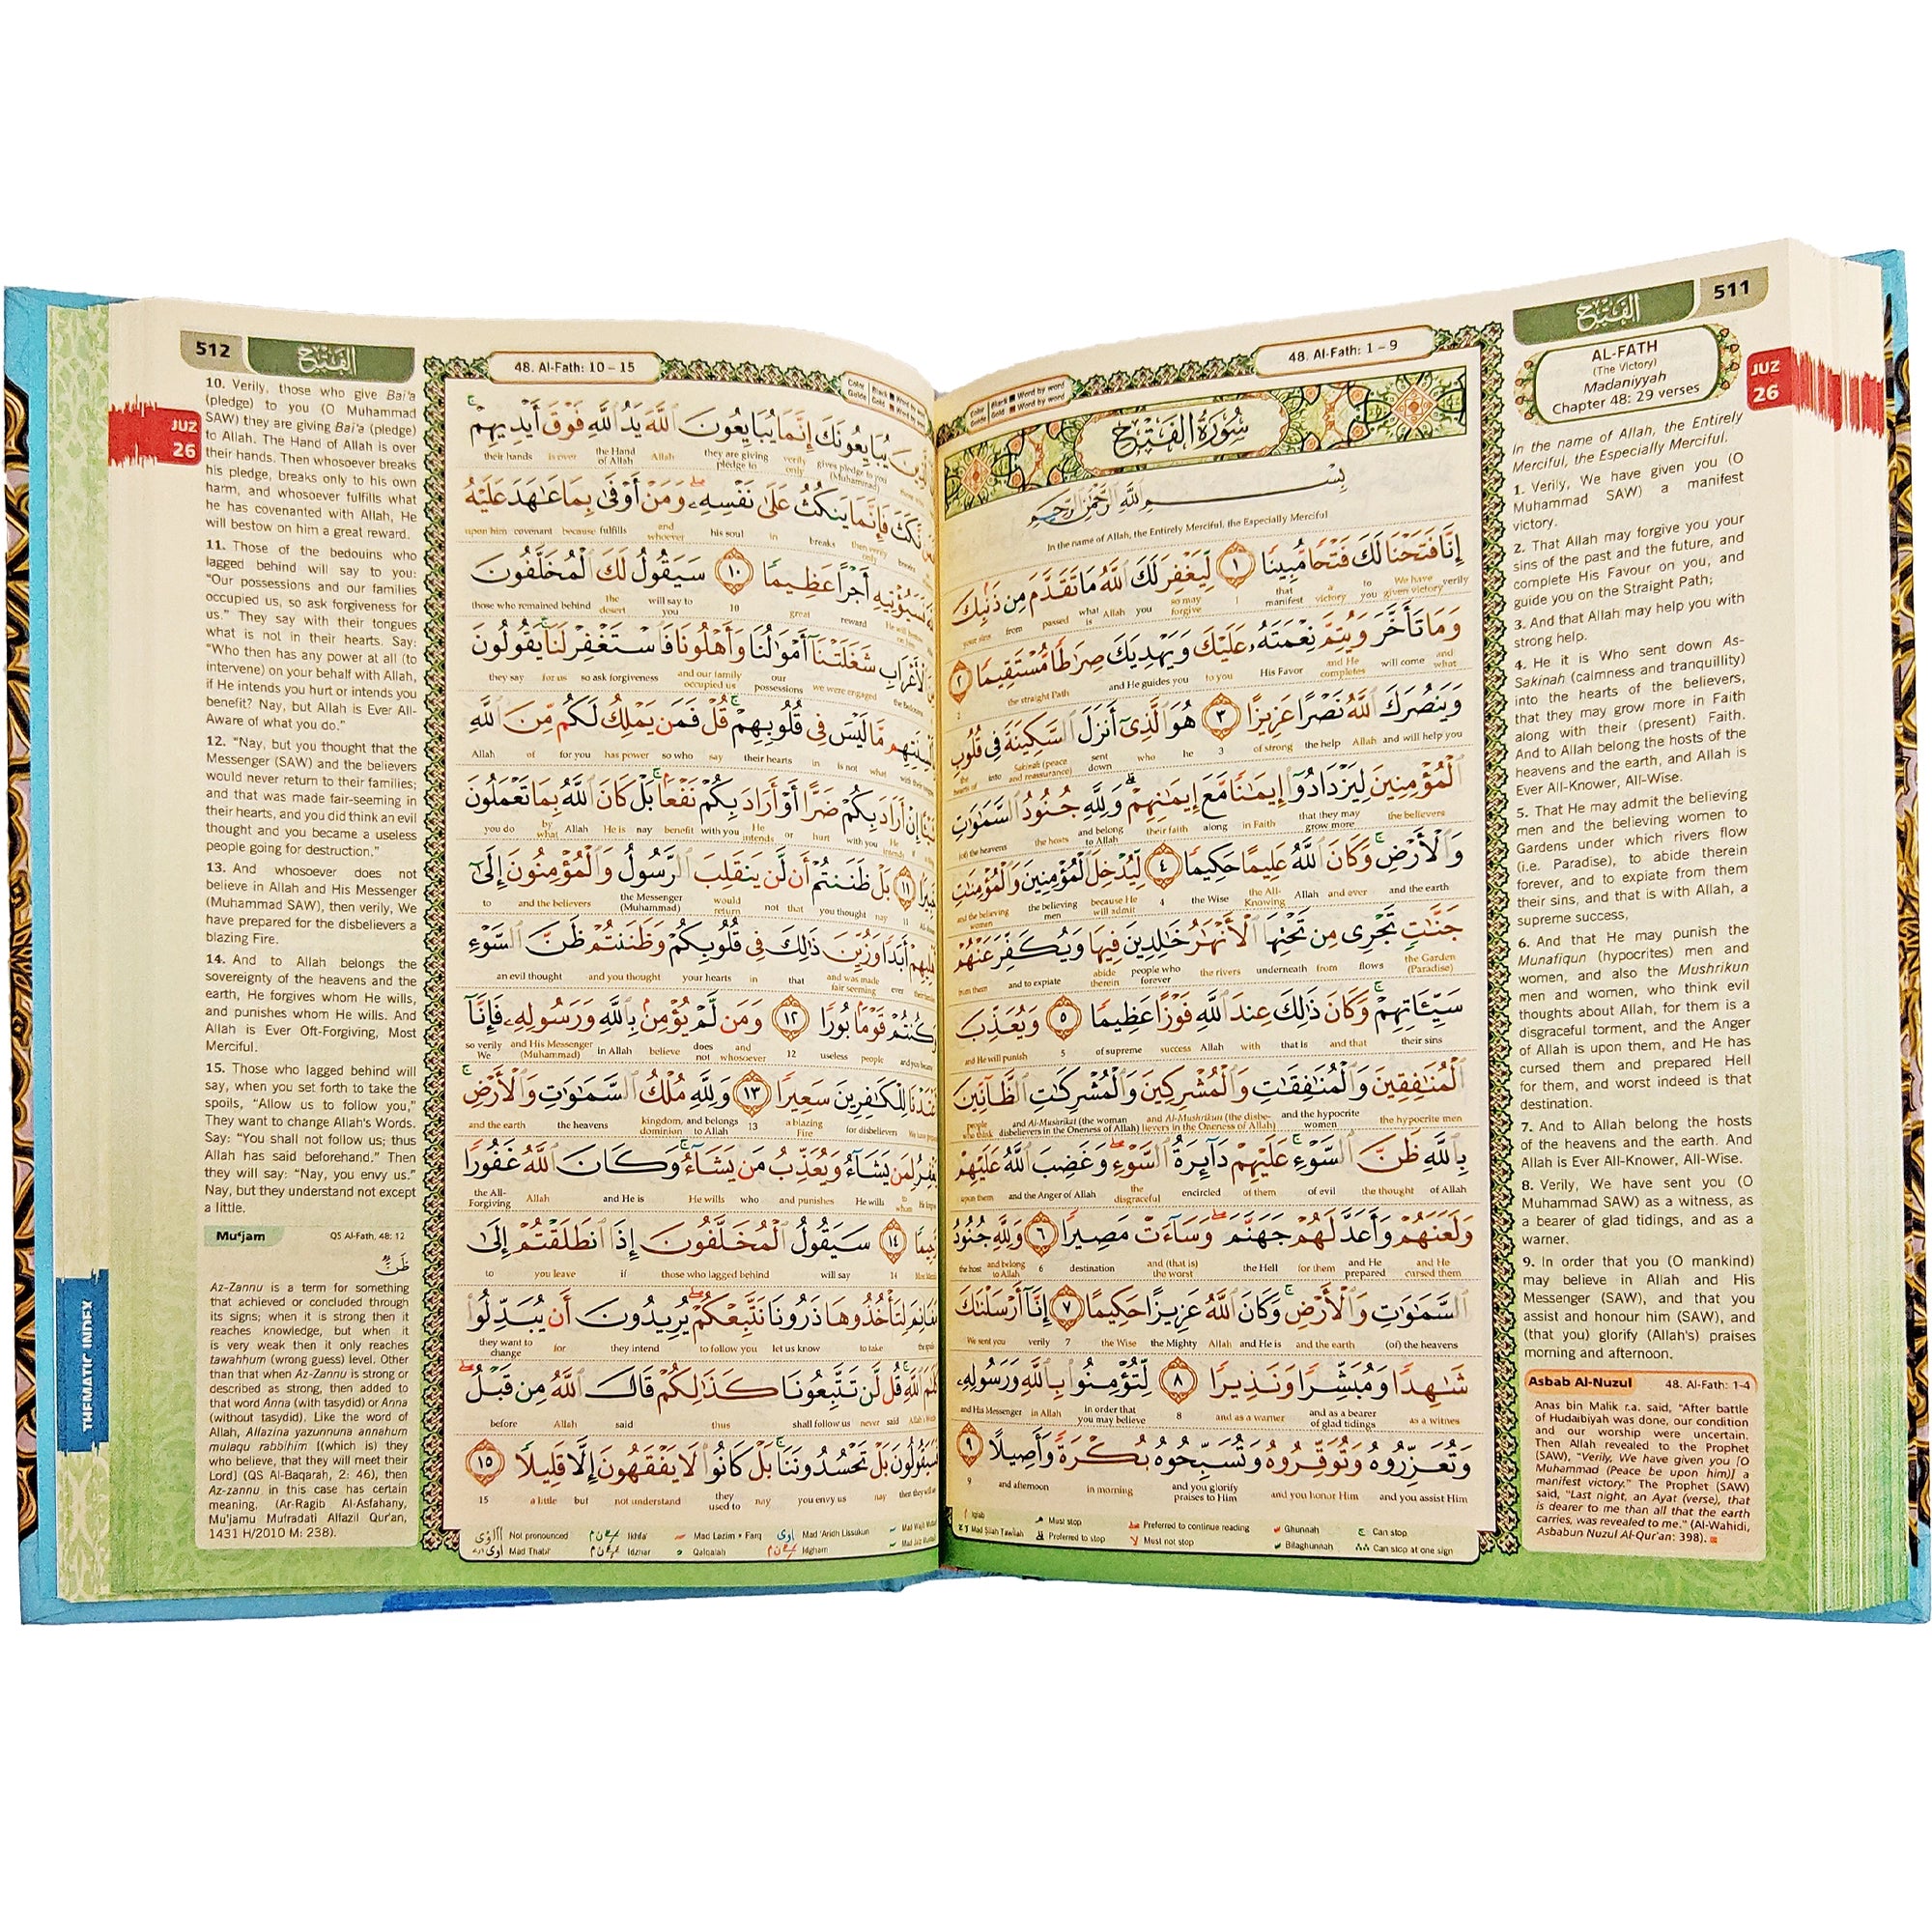 511
الفتح
JUZ
26
AL-FATH
(The Victory)
Madaniyyah
Chapter 48: 29 verses
In the name of Allah, the Entirely
Merciful, the Especially Merciful.
1. Verily, We have given you (O
Muhammad SAW) a manifest
victory.
2. That Allah may forgive you your
sins of the past and the future, and
complete His Favour on you, and
guide you on the Straight Path;
3. And that Allah may help you with
strong help.
4. He it is Who sent down As-
Sakinah (calmness and tranquillity)
into the hearts of the believers,
that they may grow more in Faith
along with their (present) Faith.
And to Allah belong the hosts of the
heavens and the earth, and Allah is
Ever All-Knower, All-Wise.
5. That He may admit the believing
men and the believing women to
Gardens under which rivers flow
(i.e. Paradise), to abide therein
forever, and to expiate from them
their sins, and that is with Allah, a
supreme success,
6. And that He may punish the
Munafiqun (hypocrites) men and
women, and also the Mushrikun
men and women, who think evil
thoughts about Allah, for them is a
disgraceful torment, and the Anger
of Allah is upon them, and He has
cursed them and prepared Hell
for them, and worst indeed is that
destination.
7. And to Allah belong the hosts
of the heavens and the earth. And
Allah is Ever All-Knower, All-Wise.
8. Verily, We have sent you (O
Muhammad SAW) as a witness, as
a bearer of glad tidings, and as a
warner.
9. In order that you (O mankind)
may believe in Allah and His
Messenger (SAW), and that you
assist and honour him (SAW), and
(that you) glorify (Allah's) praises
morning and afternoon.
Asbab Al-Nuzul 48. Al-Fath: 1-4
Anas bin Malik r.a. said, "After battle
of Hudaibiyah was done, our condition
and our worship were uncertain.
Then Allah revealed to the Prophet
(SAW), "Verily, We have given you [O
Muhammad (Peace be upon him)] a
manifest victory." The Prophet (SAW)
said, "Last night, an Ayat (verse), that
is dearer to me than all that the earth
carries, was revealed to me." (Al-Wahidi,
Asbabun Nuzul Al-Qur'an: 398).
48. Al-Fath: 1 – 9
Color Guide Black Word by word
Gold Word by word
سُورَةُ الفَتْحِ
بِسْمِ اللَّهِ الرَّحْمَٰنِ الرَّحِيمِ
In the name of Allah, the Entirely Merciful, the Especially Merciful
إِنَّا فَتَحْنَا لَكَ فَتْحًا مُّبِينًا ١ لِّيَغْفِرَ لَكَ ٱللَّهُ مَا تَقَدَّمَ مِن ذَنۢبِكَ
verily We have given victory to you a victory that manifest 1 so may forgive you Allah what is passed from your sins
وَمَا تَأَخَّرَ وَيُتِمَّ نِعْمَتَهُۥ عَلَيْكَ وَيَهْدِيَكَ صِرَٰطًا مُّسْتَقِيمًا ٢
and what will come and He completes His Favor to you and He guides you the straight Path 2
وَيَنصُرَكَ ٱللَّهُ نَصْرًا عَزِيزًا ٣ هُوَ ٱلَّذِىٓ أَنزَلَ ٱلسَّكِينَةَ فِى قُلُوبِ
and will help you Allah the help of strong 3 he who sent down Sakinah (peace and reassurance) into the hearts of
ٱلْمُؤْمِنِينَ لِيَزْدَادُوٓا۟ إِيمَٰنًا مَّعَ إِيمَٰنِهِمْ ۗ وَلِلَّهِ جُنُودُ ٱلسَّمَٰوَٰتِ
the believers that they may grow more in Faith along their faith and belong to Allah the hosts (of) the heavens
وَٱلْأَرْضِ ۚ وَكَانَ ٱللَّهُ عَلِيمًا حَكِيمًا ٤ لِّيُدْخِلَ ٱلْمُؤْمِنِينَ وَٱلْمُؤْمِنَٰتِ
and the earth and ever Allah the All-Knowing the Wise 4 because He will admit the believing men and the believing women
جَنَّٰتٍ تَجْرِى مِن تَحْتِهَا ٱلْأَنْهَٰرُ خَٰلِدِينَ فِيهَا وَيُكَفِّرَ عَنْهُمْ
the Garden (Paradise) flows from underneath the rivers people who forever abide therein and to expiate from them
سَيِّـَٔاتِهِمْ ۚ وَكَانَ ذَٰلِكَ عِندَ ٱللَّهِ فَوْزًا عَظِيمًا ٥ وَيُعَذِّبَ
their sins and that that is with Allah success of supreme 5 and He will punish
ٱلْمُنَٰفِقِينَ وَٱلْمُنَٰفِقَٰتِ وَٱلْمُشْرِكِينَ وَٱلْمُشْرِكَٰتِ ٱلظَّآنِّينَ
the hypocrite men and the hypocrite women and Al-Mushrikun (the disbelievers in the Oneness of Allah) and Al-Mushrikat (the woman disbelievers in the Oneness of Allah) people who think
بِٱللَّهِ ظَنَّ ٱلسَّوْءِ ۚ عَلَيْهِمْ دَآئِرَةُ ٱلسَّوْءِ ۖ وَغَضِبَ ٱللَّهُ عَلَيْهِمْ
of Allah the thought of evil of them encircled the disgraceful and the Anger of Allah upon them
وَلَعَنَهُمْ وَأَعَدَّ لَهُمْ جَهَنَّمَ ۖ وَسَآءَتْ مَصِيرًا ٦ وَلِلَّهِ جُنُودُ
and He cursed them and He prepared for them the Hell and (that is) the worst destination 6 and belong to Allah the host
ٱلسَّمَٰوَٰتِ وَٱلْأَرْضِ ۚ وَكَانَ ٱللَّهُ عَزِيزًا حَكِيمًا ٧ إِنَّآ أَرْسَلْنَٰكَ
(of) the heavens and the earth and He is Allah the Mighty the Wise 7 verily We sent you
شَٰهِدًا وَمُبَشِّرًا وَنَذِيرًا ٨ لِّتُؤْمِنُوا۟ بِٱللَّهِ وَرَسُولِهِۦ
as a witnes and as a bearer of glad tidings and as a warner 8 in order that you may believe in Allah and His Messenger
وَتُعَزِّرُوهُ وَتُوَقِّرُوهُ وَتُسَبِّحُوهُ بُكْرَةً وَأَصِيلًا ٩
and you assist Him and you honor Him and you glorify praises to Him in morning and afternoon 9
Iqlab Must stop Preferred to continue reading Ghunnah Can stop
Mad Silah Tawilah Preferred to stop Must not stop Bilaghunnah Can stop at one sign
48. Al-Fath: 10 – 15
Color Guide Black Word by word
Gold Word by word
يُبَايِعُونَكَ إِنَّمَا يُبَايِعُونَ ٱللَّهَ يَدُ ٱللَّهِ فَوْقَ أَيْدِيهِمْ ۚ
gives pledge to you (Muhammad) verily only they are giving pledge to Allah the Hand of Allah is over their hands
نَّكَثَ فَإِنَّمَا يَنكُثُ عَلَىٰ نَفْسِهِۦ ۖ وَمَنْ أَوْفَىٰ بِمَا عَٰهَدَ عَلَيْهُ
then verily only breaks in his soul and whoever fulfills because covenant upon him
فَسَيُؤْتِيهِ أَجْرًا عَظِيمًا ١٠ سَيَقُولُ لَكَ ٱلْمُخَلَّفُونَ
He will bestow on him reward great 10 will say to you the desert those who remained behind
ٱلْأَعْرَابِ شَغَلَتْنَآ أَمْوَٰلُنَا وَأَهْلُونَا فَٱسْتَغْفِرْ لَنَا ۚ يَقُولُونَ
the Bedouins we were engaged our possessions and our family occupied us so ask forgiveness for us they say
بِأَلْسِنَتِهِم مَّا لَيْسَ فِى قُلُوبِهِمْ ۚ قُلْ فَمَن يَمْلِكُ لَكُم مِّنَ ٱللَّهِ
what is not in their hearts say so who has power for you of Allah
إِنْ أَرَادَ بِكُمْ ضَرًّا أَوْ أَرَادَ بِكُمْ نَفْعًۢا ۚ بَلْ كَانَ ٱللَّهُ بِمَا تَعْمَلُونَ
if He intends with you hurt or He intends with you benefit nay He is Allah by what you do
خَبِيرًۢا ١١ بَلْ ظَنَنتُمْ أَن لَّن يَنقَلِبَ ٱلرَّسُولُ وَٱلْمُؤْمِنُونَ إِلَىٰٓ
11 nay you thought that not would return the Messenger (Muhammad) and the believers to
أَبَدًا وَزُيِّنَ ذَٰلِكَ فِى قُلُوبِكُمْ وَظَنَنتُمْ ظَنَّ ٱلسَّوْءِ
ever and was made fair seeming that in your hearts and you thought an evil thought
وَكُنتُمْ قَوْمًۢا بُورًا ١٢ وَمَن لَّمْ يُؤْمِنۢ بِٱللَّهِ وَرَسُولِهِۦ فَإِنَّآ
people useless 12 and whosoever does not believe in Allah and His Messenger (Muhammad) so verily We
أَعْتَدْنَا لِلْكَٰفِرِينَ سَعِيرًا ١٣ وَلِلَّهِ مُلْكُ ٱلسَّمَٰوَٰتِ وَٱلْأَرْضِ ۚ
for disbelievers a blazing Fire 13 and belongs to Allah kingdom, dominion the heavens and the earth
يَغْفِرُ لِمَن يَشَآءُ وَيُعَذِّبُ مَن يَشَآءُ ۚ وَكَانَ ٱللَّهُ غَفُورًا
to whom He wills and punishes who He wills and He is Allah the All-Forgiving
رَّحِيمًا ١٤ سَيَقُولُ ٱلْمُخَلَّفُونَ إِذَا ٱنطَلَقْتُمْ إِلَىٰ
14 will say those who lagged behind if you leave to
مَغَانِمَ لِتَأْخُذُوهَا ذَرُونَا نَتَّبِعْكُمْ ۖ يُرِيدُونَ أَن يُبَدِّلُوا۟
to take let us know to follow you they intend for they want to change
كَلَٰمَ ٱللَّهِ ۚ قُل لَّن تَتَّبِعُونَا كَذَٰلِكُمْ قَالَ ٱللَّهُ مِن قَبْلُ ۖ
said never shall follow us thus said Allah before
فَسَيَقُولُونَ بَلْ تَحْسُدُونَنَا ۚ بَلْ كَانُوا۟ لَا يَفْقَهُونَ إِلَّا قَلِيلًا ١٥
nay you envy us nay they used to not understand but a little 15
Not pronounced Ikhfa' Mad Lazim • Farq Mad 'Aridh Lissukun
Mad Thabi'i Idzhar Qalqalah Idgham
512
الفتح
JUZ
26
10. Verily, those who give Bai'a
(pledge) to you (O Muhammad
SAW) they are giving Bai'a (pledge)
to Allah. The Hand of Allah is over
their hands. Then whosoever breaks
his pledge, breaks only to his own
harm, and whosoever fulfills what
he has covenanted with Allah, He
will bestow on him a great reward.
11. Those of the bedouins who
lagged behind will say to you:
"Our possessions and our families
occupied us, so ask forgiveness for
us." They say with their tongues
what is not in their hearts. Say:
"Who then has any power at all (to
intervene) on your behalf with Allah,
if He intends you hurt or intends you
benefit? Nay, but Allah is Ever All-
Aware of what you do."
12. "Nay, but you thought that the
Messenger (SAW) and the believers
would never return to their families;
and that was made fair-seeming in
their hearts, and you did think an evil
thought and you became a useless
people going for destruction."
13. And whosoever does not
believe in Allah and His Messenger
(Muhammad SAW), then verily, We
have prepared for the disbelievers a
blazing Fire.
14. And to Allah belongs the
sovereignty of the heavens and the
earth, He forgives whom He wills,
and punishes whom He wills. And
Allah is Ever Oft-Forgiving, Most
Merciful.
15. Those who lagged behind will
say, when you set forth to take the
spoils, "Allow us to follow you,"
They want to change Allah's Words.
Say: "You shall not follow us; thus
Allah has said beforehand." Then
they will say: "Nay, you envy us."
Nay, but they understand not except
a little.
Mu'jam QS Al-Fath, 48: 12
ظَنَّ
Az-Zannu is a term for something
that achieved or concluded through
its signs; when it is strong then it
reaches knowledge, but when it
is very weak then it only reaches
tawahhum (wrong guess) level. Other
than that when Az-Zannu is strong or
described as strong, then added to
that word Anna (with tasydid) or Anna
(without tasydid). Like the word of
Allah, Allazina yazunnuna annahum
mulaqu rabbihim [(which is) they
who believe, that they will meet their
Lord] (QS Al-Baqarah, 2: 46), then
Az-zannu in this case has certain
meaning. (Ar-Ragib Al-Asfahany,
Mu'jamu Mufradati Alfazil Qur'an,
1431 H/2010 M: 238).
THEMATIC INDEX